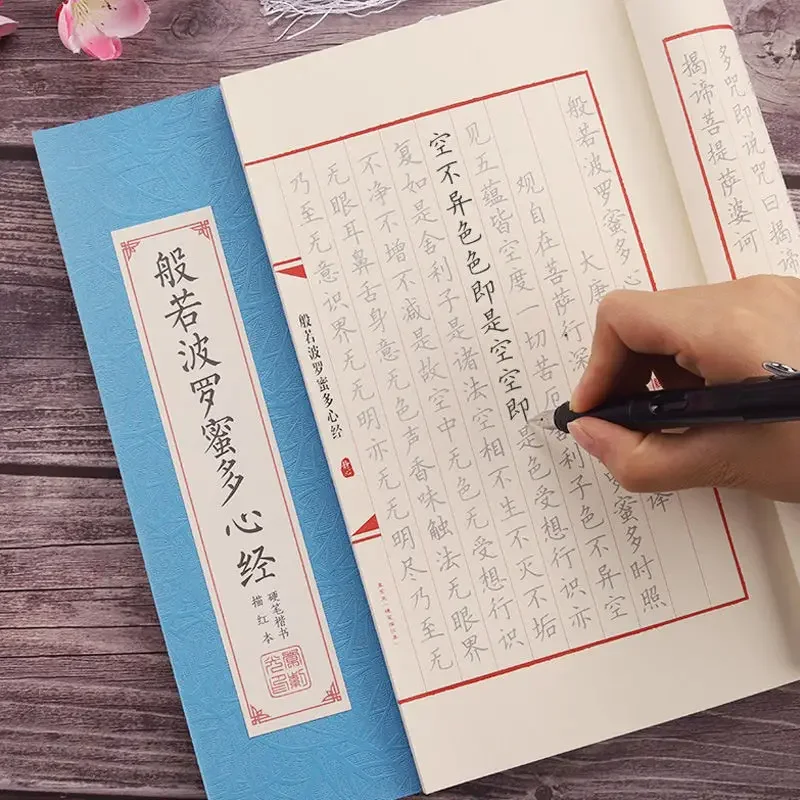 多咒即说咒曰揭谛
揭谛菩提萨婆诃
般若波罗蜜多心
大唐
译
观自在菩萨行深
罗蜜多时照
见五蕴皆空度一切苦厄
利子色不异空
空不异色色即是空空即是色受想行识亦
复如是舍利子是诸法空相不生不灭不垢
不净不增不减是故空中无色无受想行识
无眼耳鼻舌身意无色声香味触法无眼界
乃至无意识界无无明亦无无明尽乃至无
般若波罗蜜多心经
静心
般若波罗蜜多心经
硬笔楷书
描红本